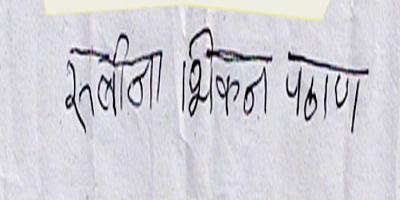 रुबीना भिकन पठाण